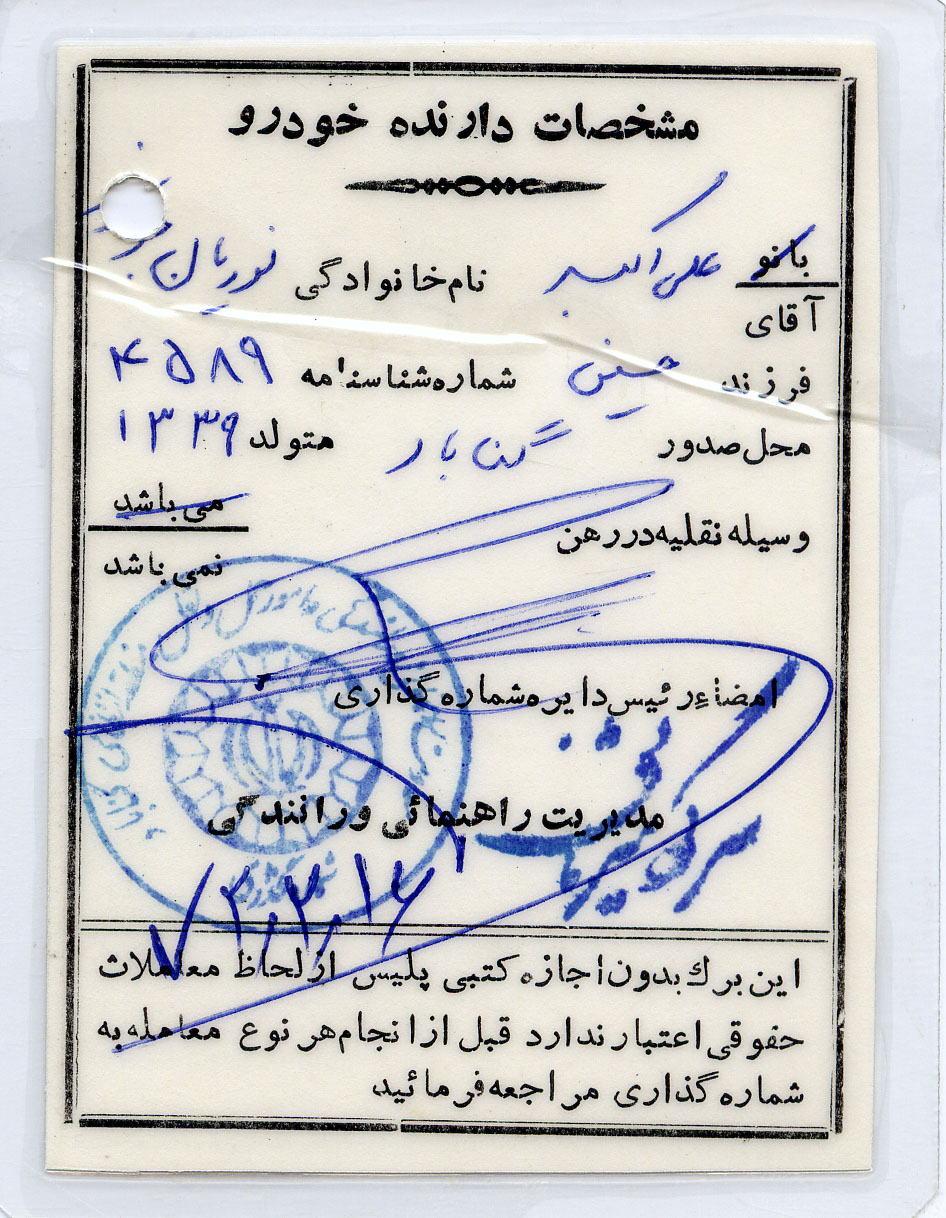 مشخصات دارنده خودرو
بانو علی اکبر نام خانوادگی نوریان
آقای
فرزند حسین شماره شناسنامه ۴۵۸۹
محل صدور متولد ۱۳۳۹
وسیله نقلیه در رهن می باشد
نمی باشد
امضاء رئیس دایره شماره گذاری
مدیریت راهنمائی و رانندگی
این برك بدون اجازه کتبی پلیس از لحاظ معاملات
حقوقی اعتبار ندارد قبل از انجام هر نوع معامله به
شماره گذاری مراجعه فرمائید